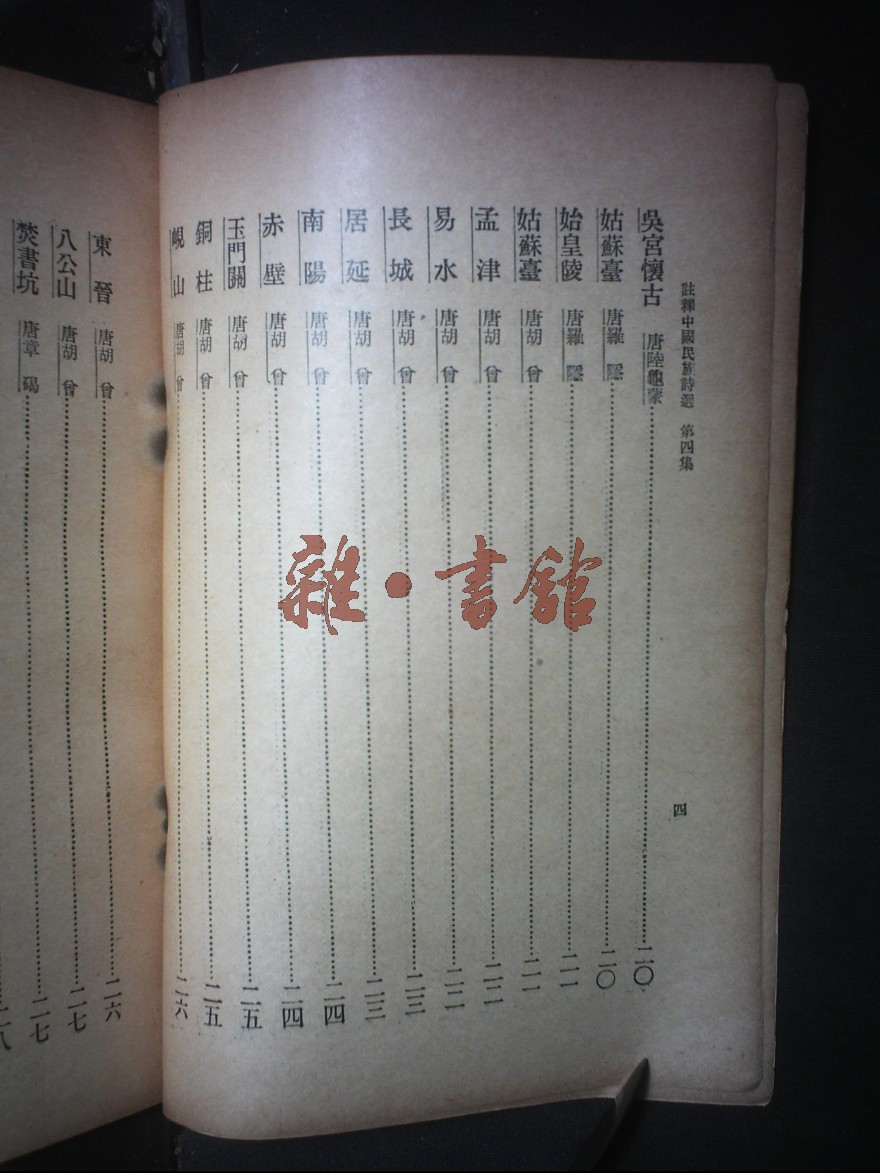 註釋中國民族詩選 第四集
四
吳宮懷古 唐陸龜蒙 二〇
姑蘇臺 唐羅隱 二〇
始皇陵 唐羅隱 二一
姑蘇臺 唐胡曾 二一
孟津 唐胡曾 二二
易水 唐胡曾 二二
長城 唐胡曾 二三
居延 唐胡曾 二三
南陽 唐胡曾 二四
赤壁 唐胡曾 二四
玉門關 唐胡曾 二五
銅柱 唐胡曾 二五
峴山 唐胡曾 二六
東晉 唐胡曾 二六
八公山 唐胡曾 二七
焚書坑 唐章碣 二七
二八
雜·書館